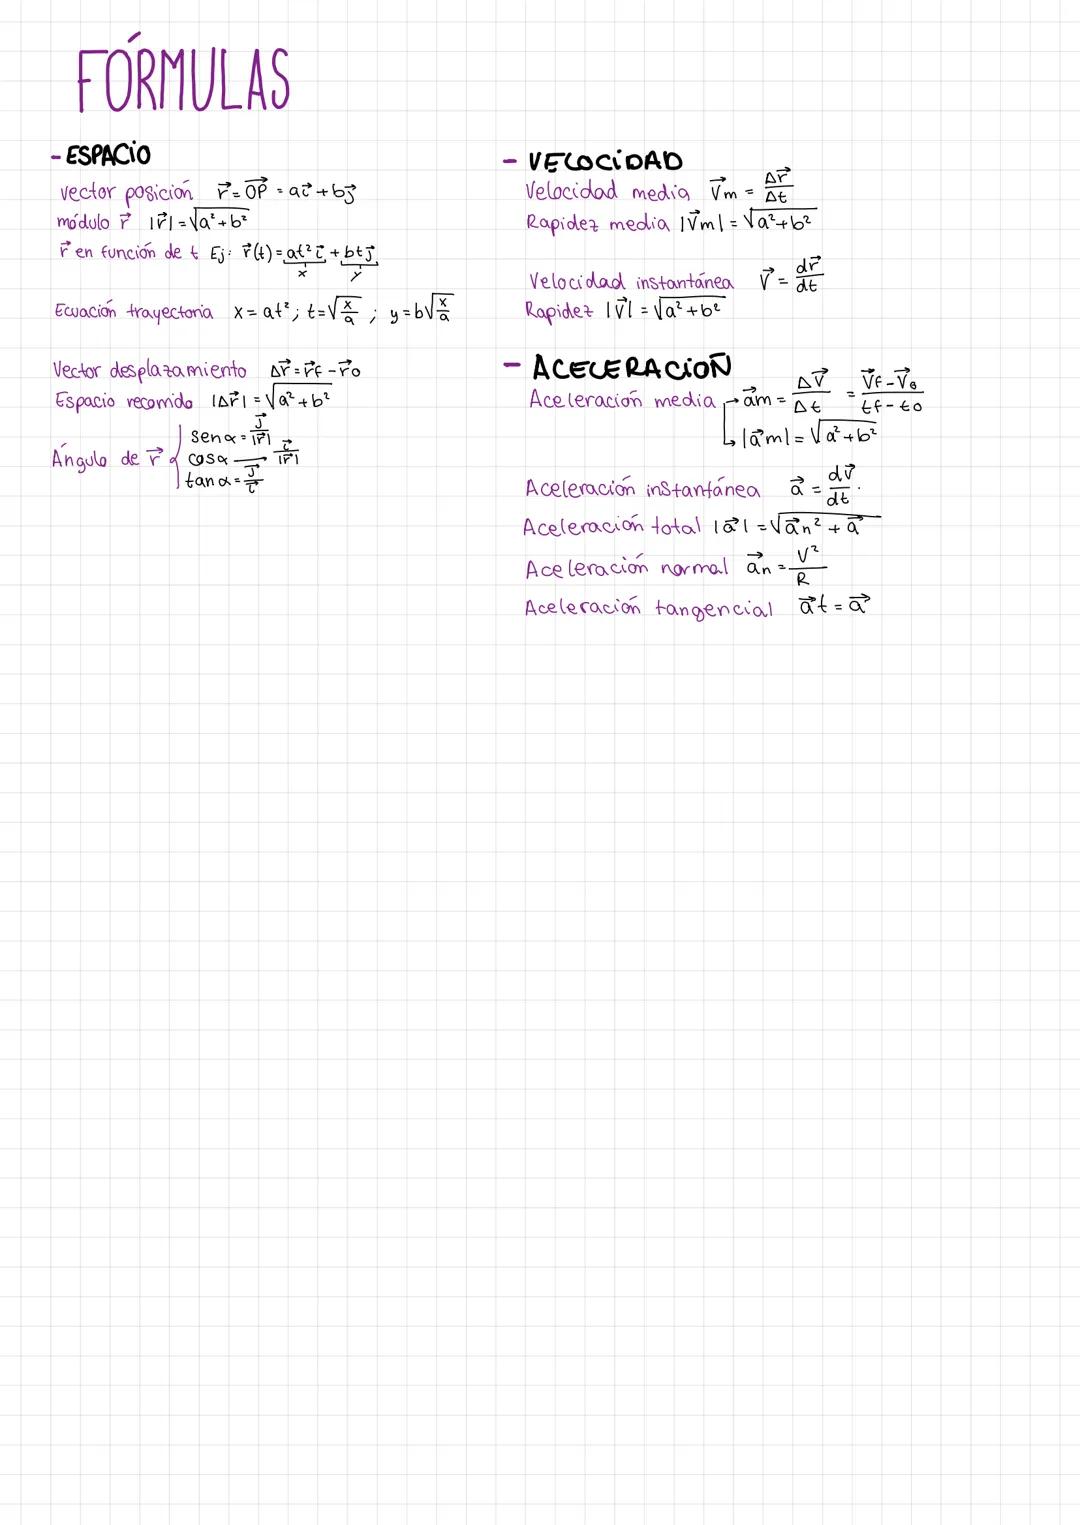 FÓRMULAS
- ESPACIO
vector posición r⃗ = OP⃗ = ai⃗ + bj⃗
módulo r⃗ |r⃗| = √(a² + b²)
r⃗ en función de t Ej: r⃗(t) = at² i⃗ + bt j⃗
x y
Ecuación trayectoria x = at²; t = √(x/a) ; y = b√(x/a)
Vector desplazamiento Δr⃗ = r⃗f - r⃗o
Espacio recorrido |Δr⃗| = √(a² + b²)
Ángulo de r⃗ { sen α = j⃗/|r⃗|
cos α — i⃗/|r⃗|
tan α = j⃗/i⃗
- VELOCIDAD
Velocidad media v⃗m = Δr⃗/Δt
Rapidez media |v⃗m| = √(a² + b²)
Velocidad instantánea v⃗ = dr⃗/dt
Rapidez |v⃗| = √(a² + b²)
- ACELERACIÓN
Aceleración media → a⃗m = Δv⃗/Δt = (v⃗f - v⃗o)/(tf - to)
↳ |a⃗m| = √(a² + b²)
Aceleración instantánea a⃗ = dv⃗/dt .
Aceleración total |a⃗| = √(a⃗n² + a⃗)
Aceleración normal a⃗n = V²/R
Aceleración tangencial a⃗t = a⃗